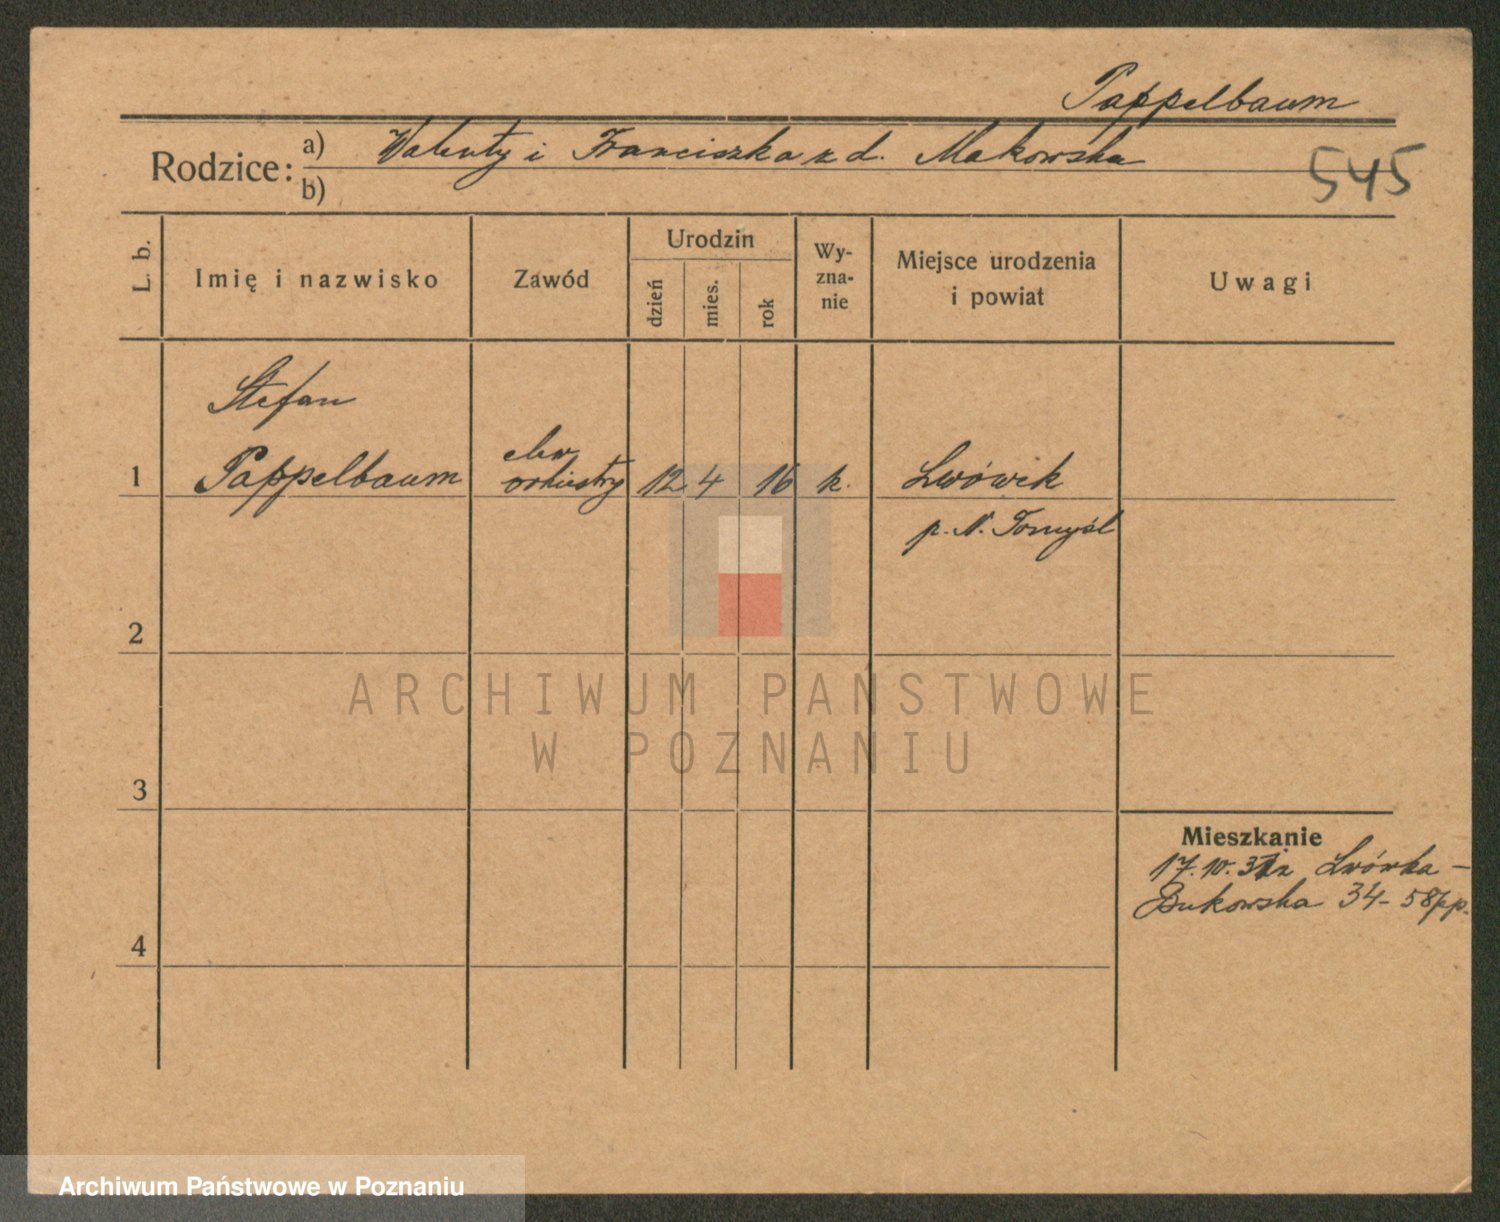 Pappelbaum
Rodzice: a) Walenty i Franciszka z d. Makowska
b)
545
L. b.
Imię i nazwisko
Zawód
Urodzin
dzień
mies.
rok
Wy-
zna-
nie
Miejsce urodzenia
i powiat
Uwagi
Stefan
1 Pappelbaum
elew
orkiestry
12 4 16 k.
Lwówek
p. N. Tomyśl
2
ARCHIWUM PAŃSTWOWE
W POZNANIU
3
Mieszkanie
17.10.31 z Lwówka –
Bukowska 34 – 58 pp.
4
Archiwum Państwowe w Poznaniu